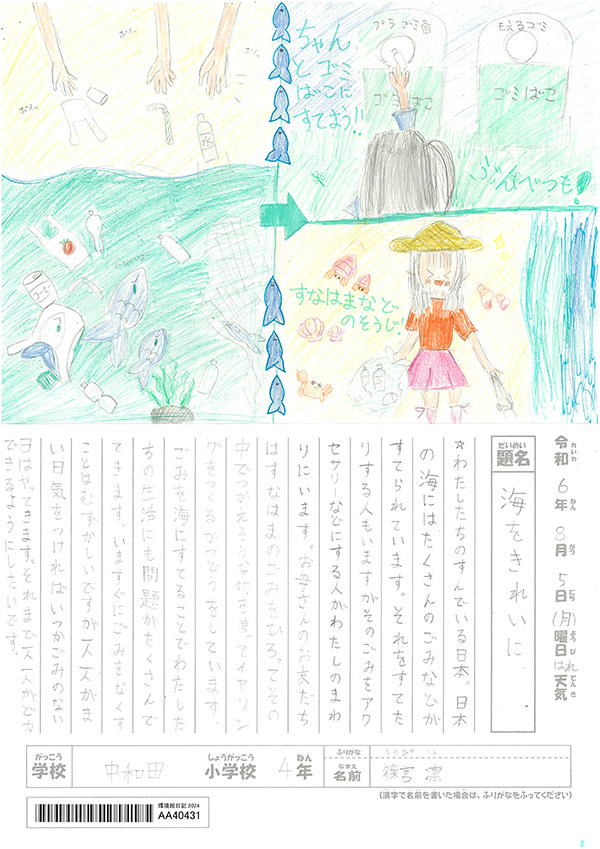 ポイッ
ポイッ
ポイッ
水
コーヒー
ちゃん
とゴミ
ばこに
すてよう!!
プラゴミ
ゴミばこ
もえるゴミ
ゴミばこ
ぶんべつも!
すなはまなど
のそうじ!
令和6年8月5日(月)曜日はれ天気
れいわ ねん がつ にち ようび てんき
だいめい
題名
海をきれいに
☆わたしたちのすんでいる日本。日本
の海にはたくさんのごみなどが
すてられています。それをすてた
りする人もいますがそのごみをアク
セサリーなどにする人がわたしのまわ
りにいます。お母さんのお友だち
はすなはまのごみをひろってその
中でつかえそうな物を使てイヤリン
グをつくるかつどうをしています。
ごみを海にすてることでわたした
ちの生活にも問題がたくさんで
てきます。いますぐにごみをなくす
ことはむずかしいですが一人一人がま
い日気をつければいつかごみのない
日はやってきます。それまで一人一人がどりょく
できるようにしたいです。
がっこう
学校
中和田
しょうがっこう
小学校
4年
ねん
ふりがな
なまえ
名前
篠宮 凜
(漢字で名前を書いた場合は、ふりがなをふってください)
環境絵日記 2024
AA40431